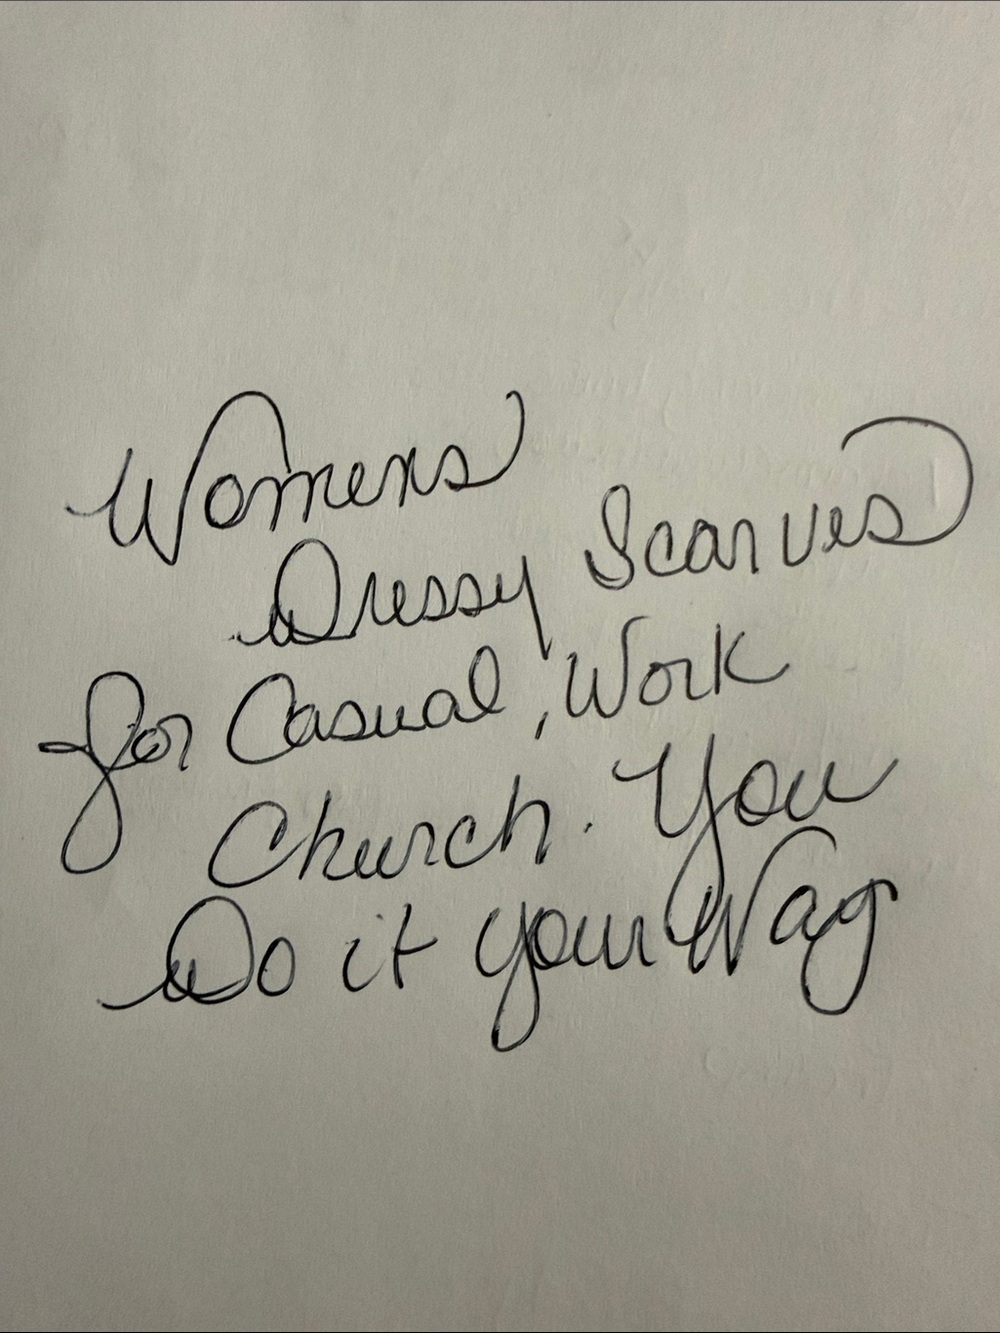 Womens
Dressy Scarves
for Casual, Work
Church. You
Do it your Way